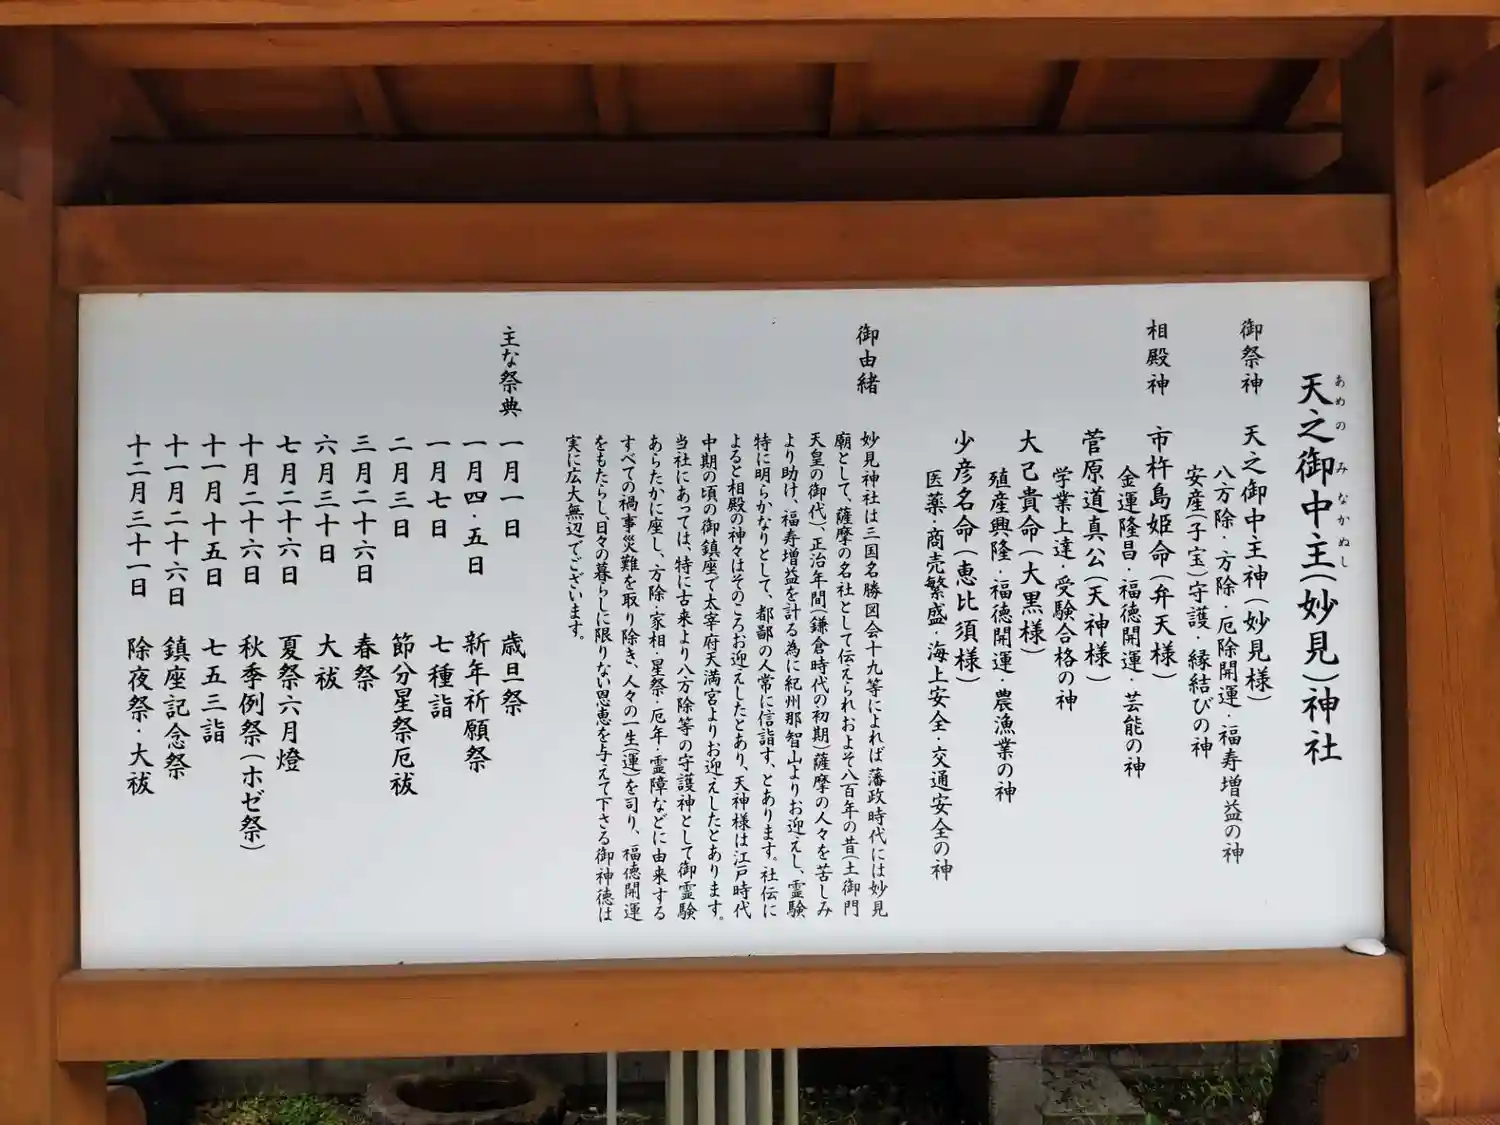 天之御中主(妙見)神社
あめのみなかぬし
御祭神　天之御中主神(妙見様)
八方除・方除・厄除開運・福寿増益の神
安産(子宝)守護・縁結びの神
相殿神　市杵島姫命(弁天様)
金運隆昌・福徳開運・芸能の神
菅原道真公(天神様)
学業上達・受験合格の神
大己貴命(大黒様)
殖産興隆・福徳開運・農漁業の神
少彦名命(恵比須様)
医薬・商売繁盛・海上安全・交通安全の神
御由緒
妙見神社は三国名勝図会十九等によれば藩政時代には妙見
廟として、薩摩の名社として伝えられおよそ八百年の昔(土御門
天皇の御代)、正治年間(鎌倉時代の初期)薩摩の人々を苦しみ
より助け、福寿増益を計る為に紀州那智山よりお迎えし、霊験
特に明らかなりとして、都鄙の人常に信詣す、とあります。社伝に
よると相殿の神々はそのころお迎えしたとあり、天神様は江戸時代
中期の頃の御鎮座で太宰府天満宮よりお迎えしたとあります。
当社にあっては、特に古来より八方除等の守護神として御霊験
あらたかに座し、方除・家相・星祭・厄年・霊障などに由来する
すべての禍事災難を取り除き、人々の一生(運)を司り、福徳開運
をもたらし、日々の暮らしに限りない恩恵を与えて下さる御神徳は
実に広大無辺でございます。
主な祭典
一月一日　歳旦祭
一月四・五日　新年祈願祭
一月七日　七種詣
二月三日　節分星祭厄祓
三月二十六日　春祭
六月三十日　大祓
七月二十六日　夏祭六月燈
十月二十六日　秋季例祭(ホゼ祭)
十一月十五日　七五三詣
十一月二十六日　鎮座記念祭
十二月三十一日　除夜祭・大祓